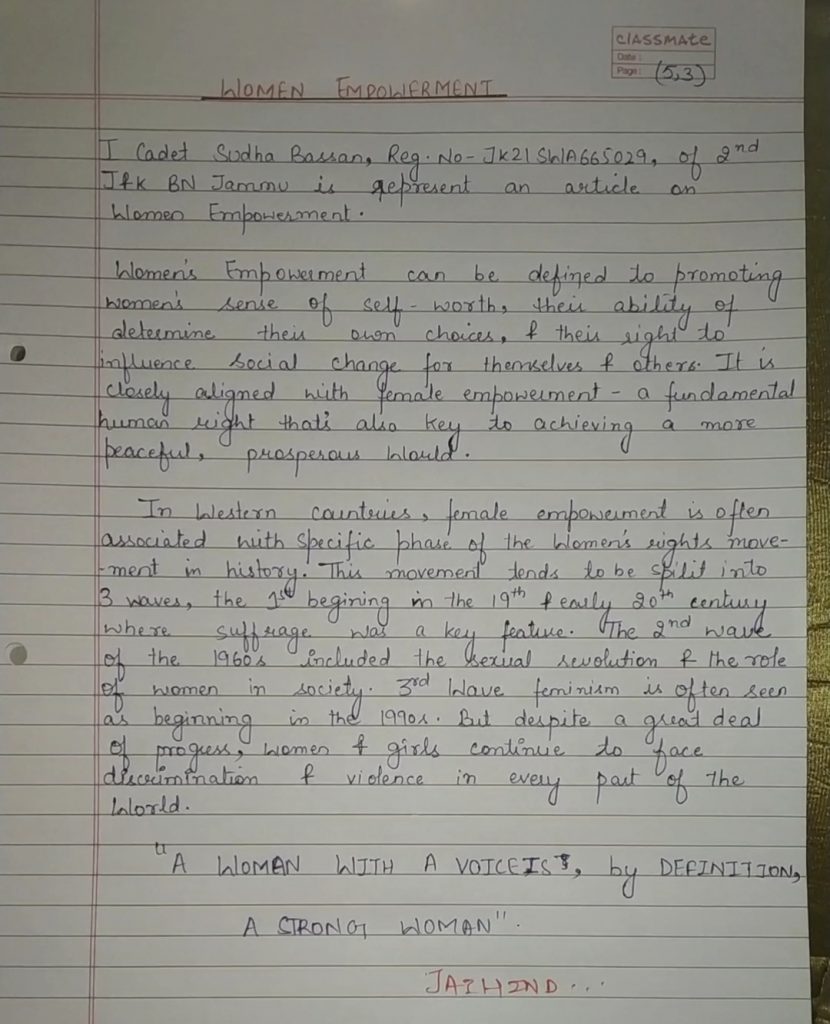 classmate
Date :
Page : (5,3)
WOMEN EMPOWERMENT
I Cadet Sudha Bassan, Reg. No- JK21SWA665029, of 2nd
J&K BN Jammu is represent an article on
Women Empowerment.
Women's Empowerment can be defined to promoting
women's sense of self-worth, their ability of
determine their own choices, & their right to
influence social change for themselves & others. It is
closely aligned with female empowerment - a fundamental
human right that's also key to achieving a more
peaceful, prosperous World.
In Western countries, female empowerment is often
associated with specific phase of the Women's rights move-
-ment in history. This movement tends to be spilit into
3 waves, the 1st begining in the 19th & early 20th century
where suffrage was a key feature. The 2nd wave
of the 1960s included the sexual revolution & the role
of women in society. 3rd Wave feminism is often seen
as beginning in the 1990s. But despite a great deal
of progress, women & girls continue to face
discrimination & violence in every part of the
World.
"A WOMAN WITH A VOICE IS, by DEFINITION,
A STRONG WOMAN".
JAIHIND...